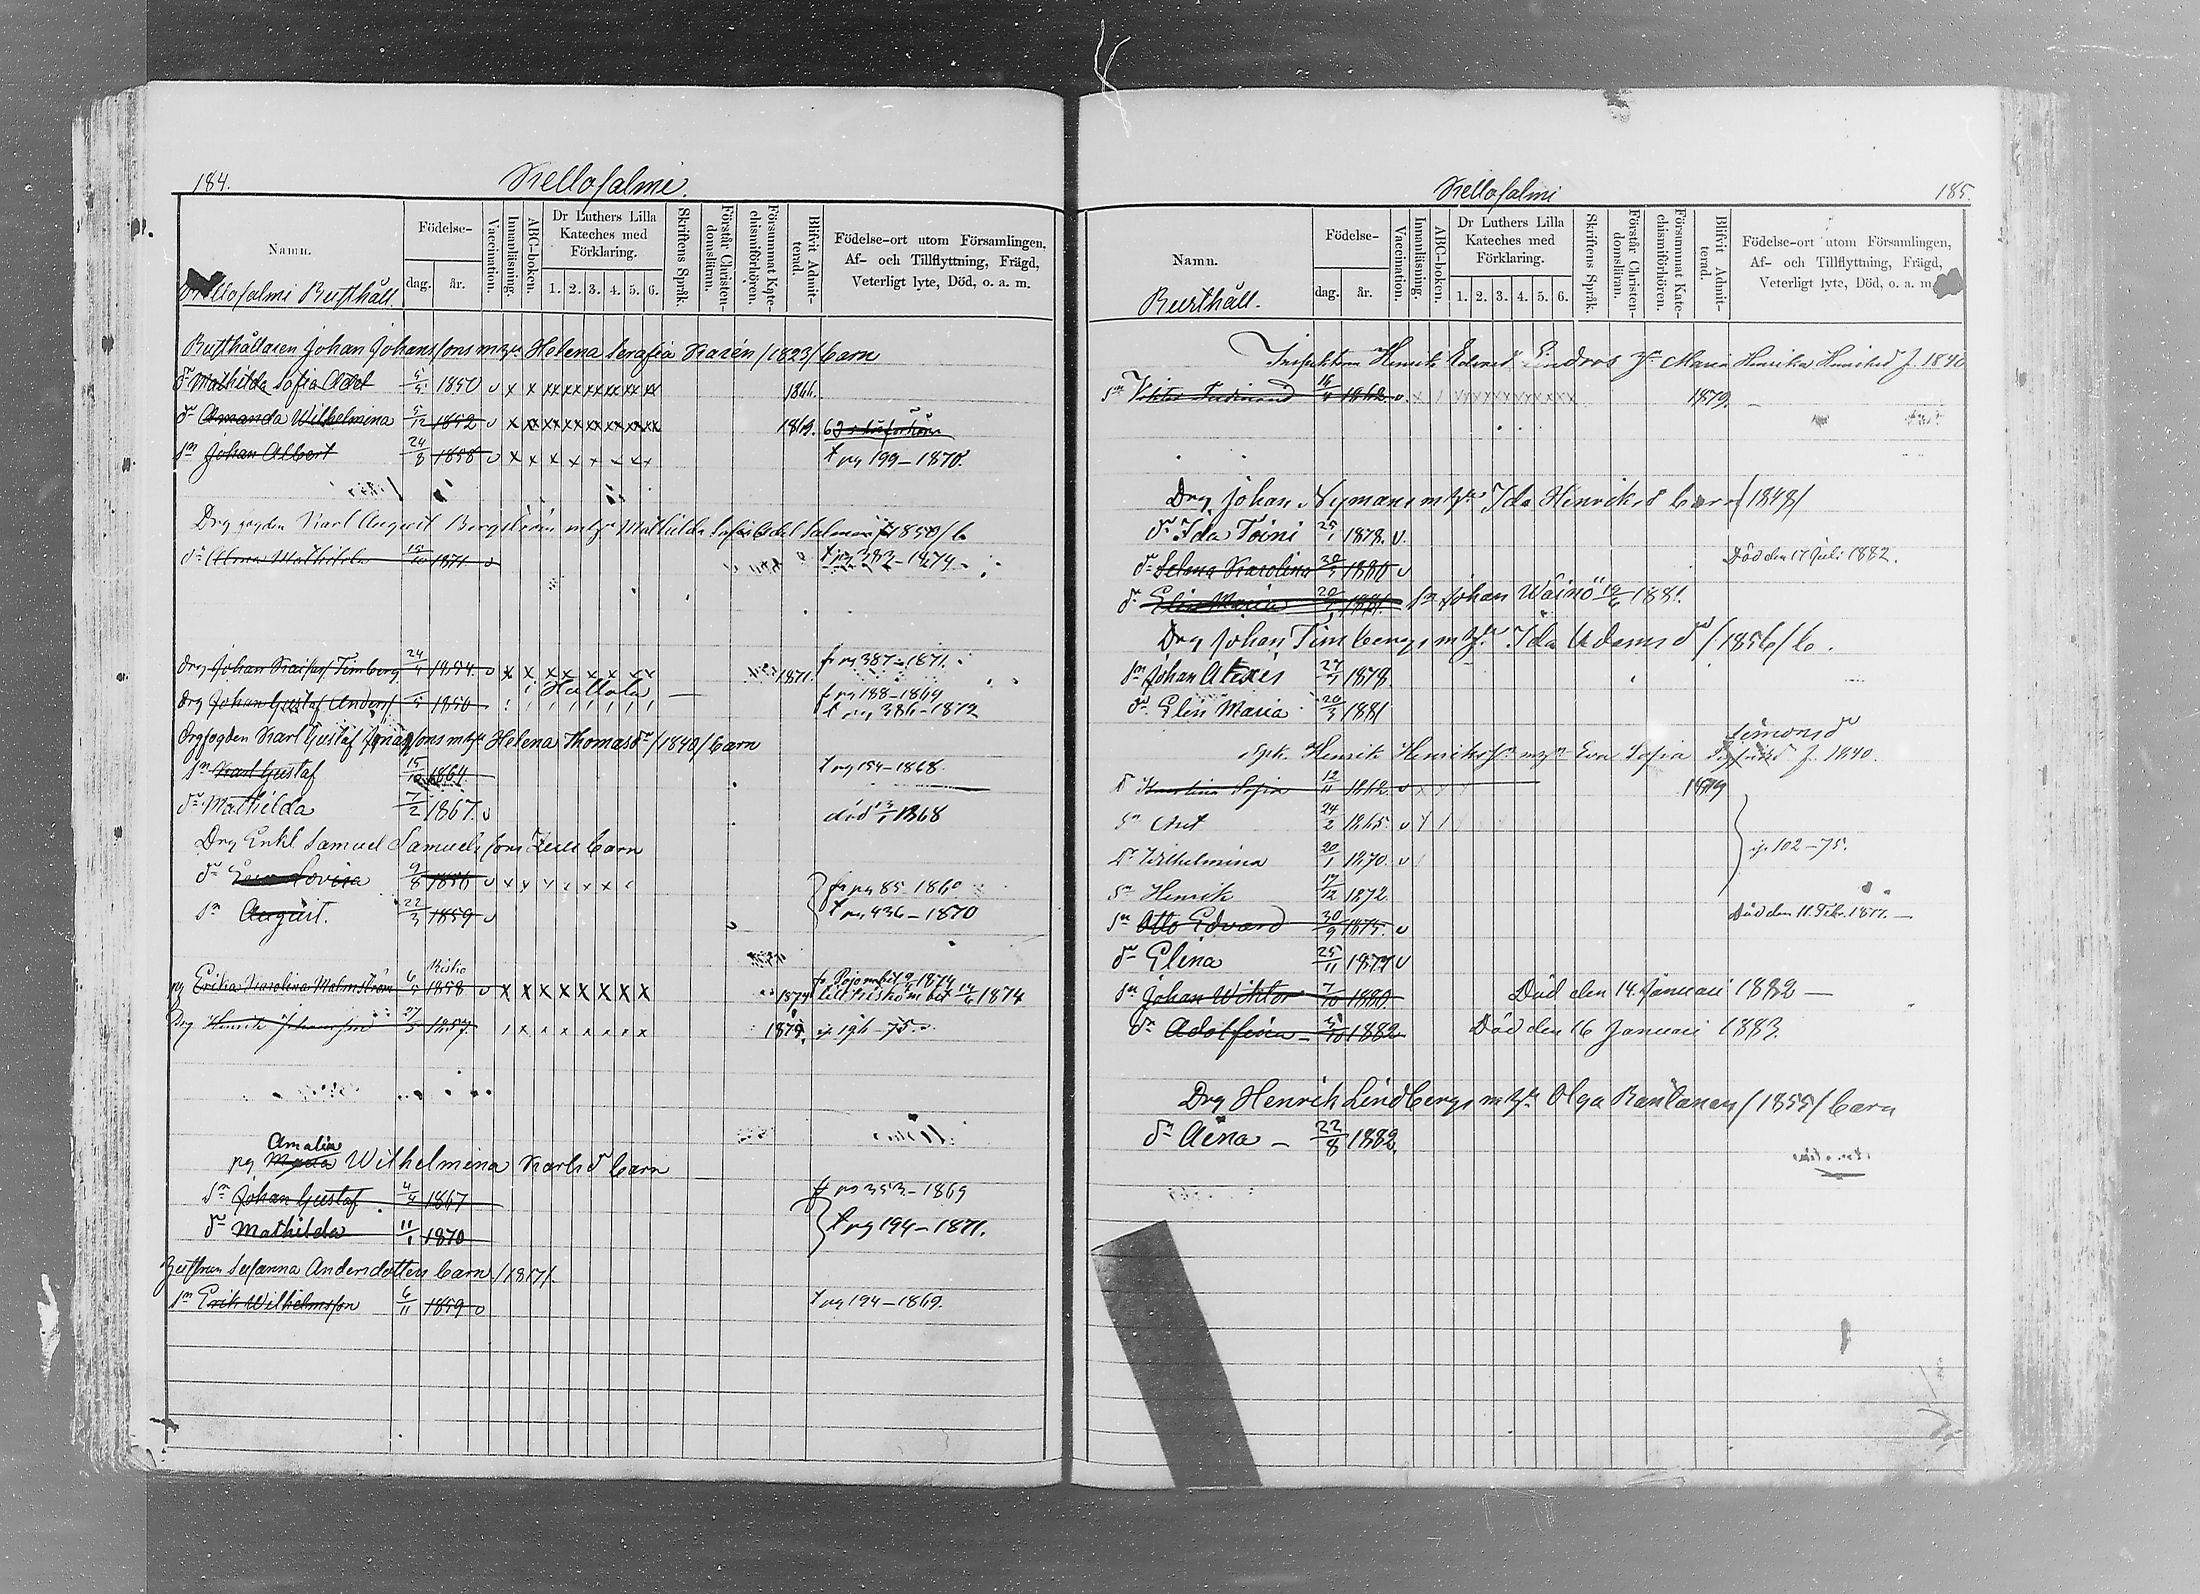 184.
Kellosalmi.
Namn.
Födelse-
dag.
år.
Vaccination.
Innanläsning.
ABC-boken.
Dr Luthers Lilla
Kateches med
Förklaring.
1. 2. 3. 4. 5. 6.
Skriftens Språk.
Förstår Christendomsläran.
Försummat Katechismiförhören.
Blifvit Admitterad.
Födelse-ort utom Församlingen,
Af- och Tillflyttning, Frägd,
Veterligt lyte, Död, o. a. m.
Kellosalmi Rusthåll.
Rusthållaren Johan Johanssons m hu Helena Serafia Karén /1823/ barn
dr Mathilda Sofia Adel 5/5 1850 v x x xx xx xx xx xx xx 1866.
dr Amanda Wilhelmina 5/12 1852 v x x xx xx xx xx xx xx 1869.
sn Johan Albert 24/8 1858 v x x x x x x x t pg 199-1870.
Drg fogden Karl August Bergström m hu Mathilda Sofia Adel /1850/ b
dr Alma Mathilda 1871 v t pg 383-1874.
drg Johan Timberg 24/ 1854 v x x x x x x x x 1871. fr pg 387-1871.
Hollola
drg Johan Gustaf Anderss 1850 fr pg 188-1869
t pg 386-1872
drgfogden Karl Gustaf Jonassons m hu Helena Thomasdr /1840/ barn
sn Karl Gustaf 15/10 1864. t pg 154-1868.
dr Mathilda 7/2 1867. v död 1868
Drg Enkl Samuel Samuelssons barn
dr Lovisa 9/8 1856 v x x fr pg 85-1860
sn August. 22/3 1859 v t pg 436-1870
Kisko
pg Erika Karolina Malmström 6/5 1858 v x x x x x x x x 1874 fr Pojo m bet 1874
till Kisko m bet 1874
Drg Henrik Johansson 27/5 1857. 1874. ip 196-75
Amalia
pg Wilhelmina Karlsd barn
sn Johan Gustaf 4/4 1867 fr pg 353-1869
dr Mathilda 11/1 1870 t pg 194-1871.
Susanna Andersdotters barn /1817/
sn Erik Wilhelmsson 6/11 1859 v t pg 194-1869.
Kellosalmi
185.
Namn.
Födelse-
dag.
år.
Vaccination.
Innanläsning.
ABC-boken.
Dr Luthers Lilla
Kateches med
Förklaring.
1. 2. 3. 4. 5. 6.
Skriftens Språk.
Förstår Christendomsläran.
Försummat Katechismiförhören.
Blifvit Admitterad.
Födelse-ort utom Församlingen,
Af- och Tillflyttning, Frägd,
Veterligt lyte, Död, o. a. m.
Rusthåll.
Inspektorn Henrik Edvard Lindroos hu Maria Henrika Henriksd f. 1840
sn Viktor Ferdinand 16/4 1862 v. 1879.
Drg Johan Nymans m hu Ida Henriksd barn /1848/
dr Ida Toini 25/1 1878. v.
dr Selma Karolina 1880 v Död den 17 Juli 1882.
dr Elin Maria 20/3 1881. sn Johan Wäinö 1881.
Drg Johan Timbergs m hu Ida Adamsdr /1856/ b.
sn Johan Alexis 27/7 1878.
dr Elin Maria 20/3 1881
Simonsdr
Henrik Henrikss m hu Eva Sofia f. 1840.
dr Karolina Sofia 12/11 1862 v 1879
sn 24/2 1865. v
dr Wilhelmina 20/1 1870. v
ip 102-75.
sn Henrik 17/12 1872.
sn Otto Edvard 30/9 1875. v Död den 11. Febr. 1877.
dr Elina 25/11 1877 v
sn Johan Wiktor 7/10 1880 Död den 14. Januari 1882
dr Adolfina 1882 Död den 16 Januari 1883.
Drg Henrik Lindbergs m hu Olga Rantanen /1855/ barn
dr Aina 22/8 1882.